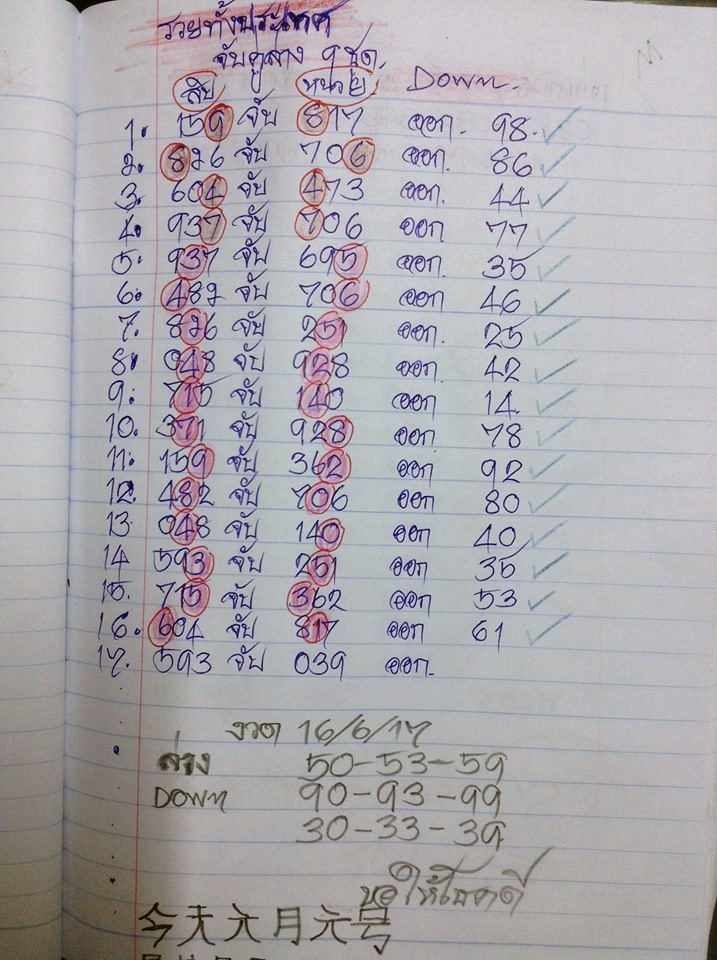 รวยทั้งประเทศ
จับคู่ล่าง 9 ชุด.
สิบ หน่วย Down.
1. 159 จับ 817 ออก. 98. ✓
2. 826 จับ 706 ออก. 86 ✓
3. 604 จับ 473 ออก. 44 ✓
4. 937 จับ 706 ออก 77 ✓
5. 937 จับ 695 ออก. 35 ✓
6. 482 จับ 706 ออก 46 ✓
7. 826 จับ 251 ออก 25 ✓
8. 048 จับ 928 ออก 42 ✓
9. 715 จับ 140 ออก 14 ✓
10. 371 จับ 928 ออก 78 ✓
11. 159 จับ 362 ออก 92 ✓
12. 482 จับ 706 ออก 80 ✓
13. 048 จับ 140 ออก 40 ✓
14 593 จับ 251 ออก 35 ✓
15. 715 จับ 362 ออก 53 ✓
16. 604 จับ 817 ออก 61 ✓
17. 593 จับ 039 ออก.
งวด 16/6/17
ล่าง 50-53-59
DOWN 90-93-99
30-33-39
ขอให้โชคดี
今天六月六号